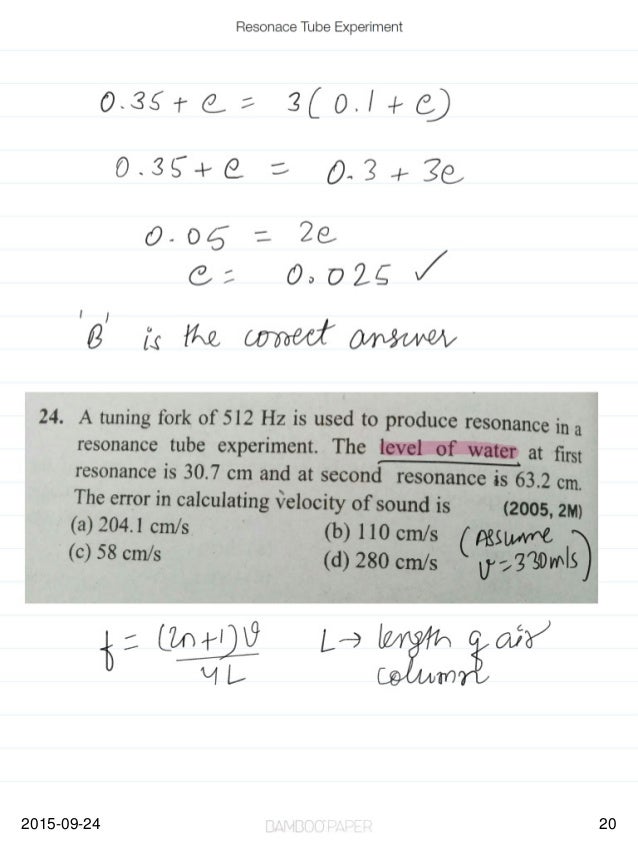 Resonace Tube Experiment
0.35 + e = 3(0.1 + e)
0.35 + e = 0.3 + 3e
0.05 = 2e
e = 0.025 ✓
'B' is the correct answer
24. A tuning fork of 512 Hz is used to produce resonance in a
resonance tube experiment. The level of water at first
resonance is 30.7 cm and at second resonance is 63.2 cm.
The error in calculating velocity of sound is (2005, 2M)
(a) 204.1 cm/s (b) 110 cm/s (Assume
(c) 58 cm/s (d) 280 cm/s v=330m/s)
f = (2n+1)v L → length of air
4L column
2015-09-24 BAMBOO PAPER 20